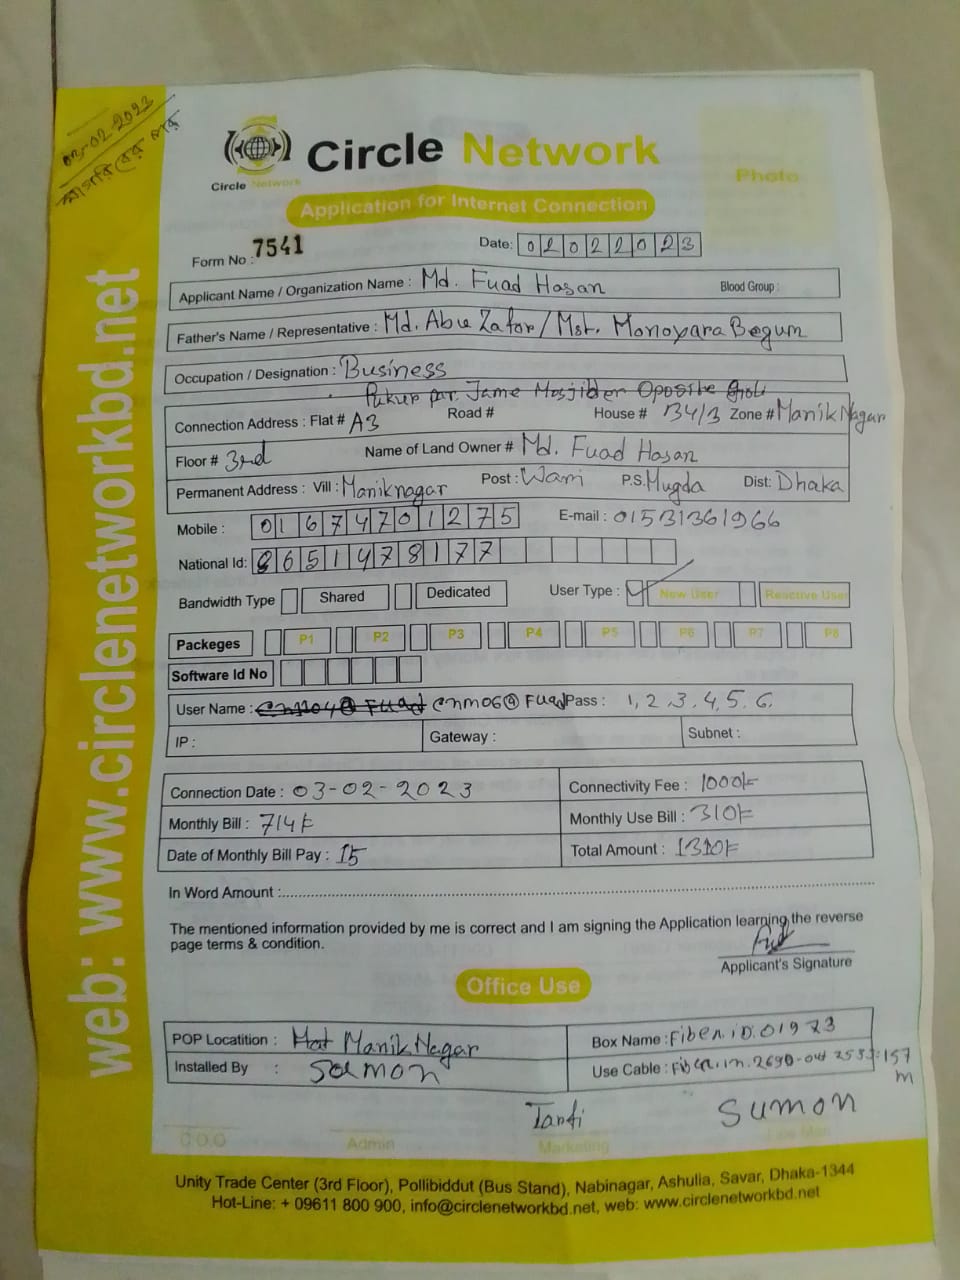 03-02-2023
Circle Network
Circle Network
Photo
Application for Internet Connection
Form No : 7541
Date: 02022023
Applicant Name / Organization Name : Md. Fuad Hasan Blood Group :
Father's Name / Representative : Md. Abu Zafor / Mst. Monoyara Begum
Occupation / Designation : Business
Pukur par Jame Masjider Opposite
Connection Address : Flat # A3 Road # House # 134/3 Zone # Manik Nagar
Floor # 3rd Name of Land Owner # Md. Fuad Hasan
Permanent Address : Vill : Maniknagar Post : Wari P.S. Mugda Dist: Dhaka
Mobile : 01674701275 E-mail : 01531361966
National Id: 8651478177
Bandwidth Type Shared Dedicated User Type : New User Reactive User
Packeges P1 P2 P3 P4 P5 P6 P7 P8
Software Id No
User Name : cnm06@Fuad Pass : 1,2,3,4,5,6,
IP : Gateway : Subnet :
Connection Date : 03-02-2023 Connectivity Fee : 1000/=
Monthly Bill : 714/= Monthly Use Bill : 310/=
Date of Monthly Bill Pay : 15 Total Amount : 1310/=
In Word Amount :
The mentioned information provided by me is correct and I am signing the Application learning the reverse
page terms & condition.
Applicant's Signature
Office Use
POP Locatition : Hat Manik Nagar Box Name : Fiber.iD.01973
Installed By : Use Cable : Fiber.in.2690-out 2533=157
m
Tanfi SUMON
C.O.O Admin Marketing Line Man
Unity Trade Center (3rd Floor), Pollibiddut (Bus Stand), Nabinagar, Ashulia, Savar, Dhaka-1344
Hot-Line: + 09611 800 900, info@circlenetworkbd.net, web: www.circlenetworkbd.net
web: www.circlenetworkbd.net